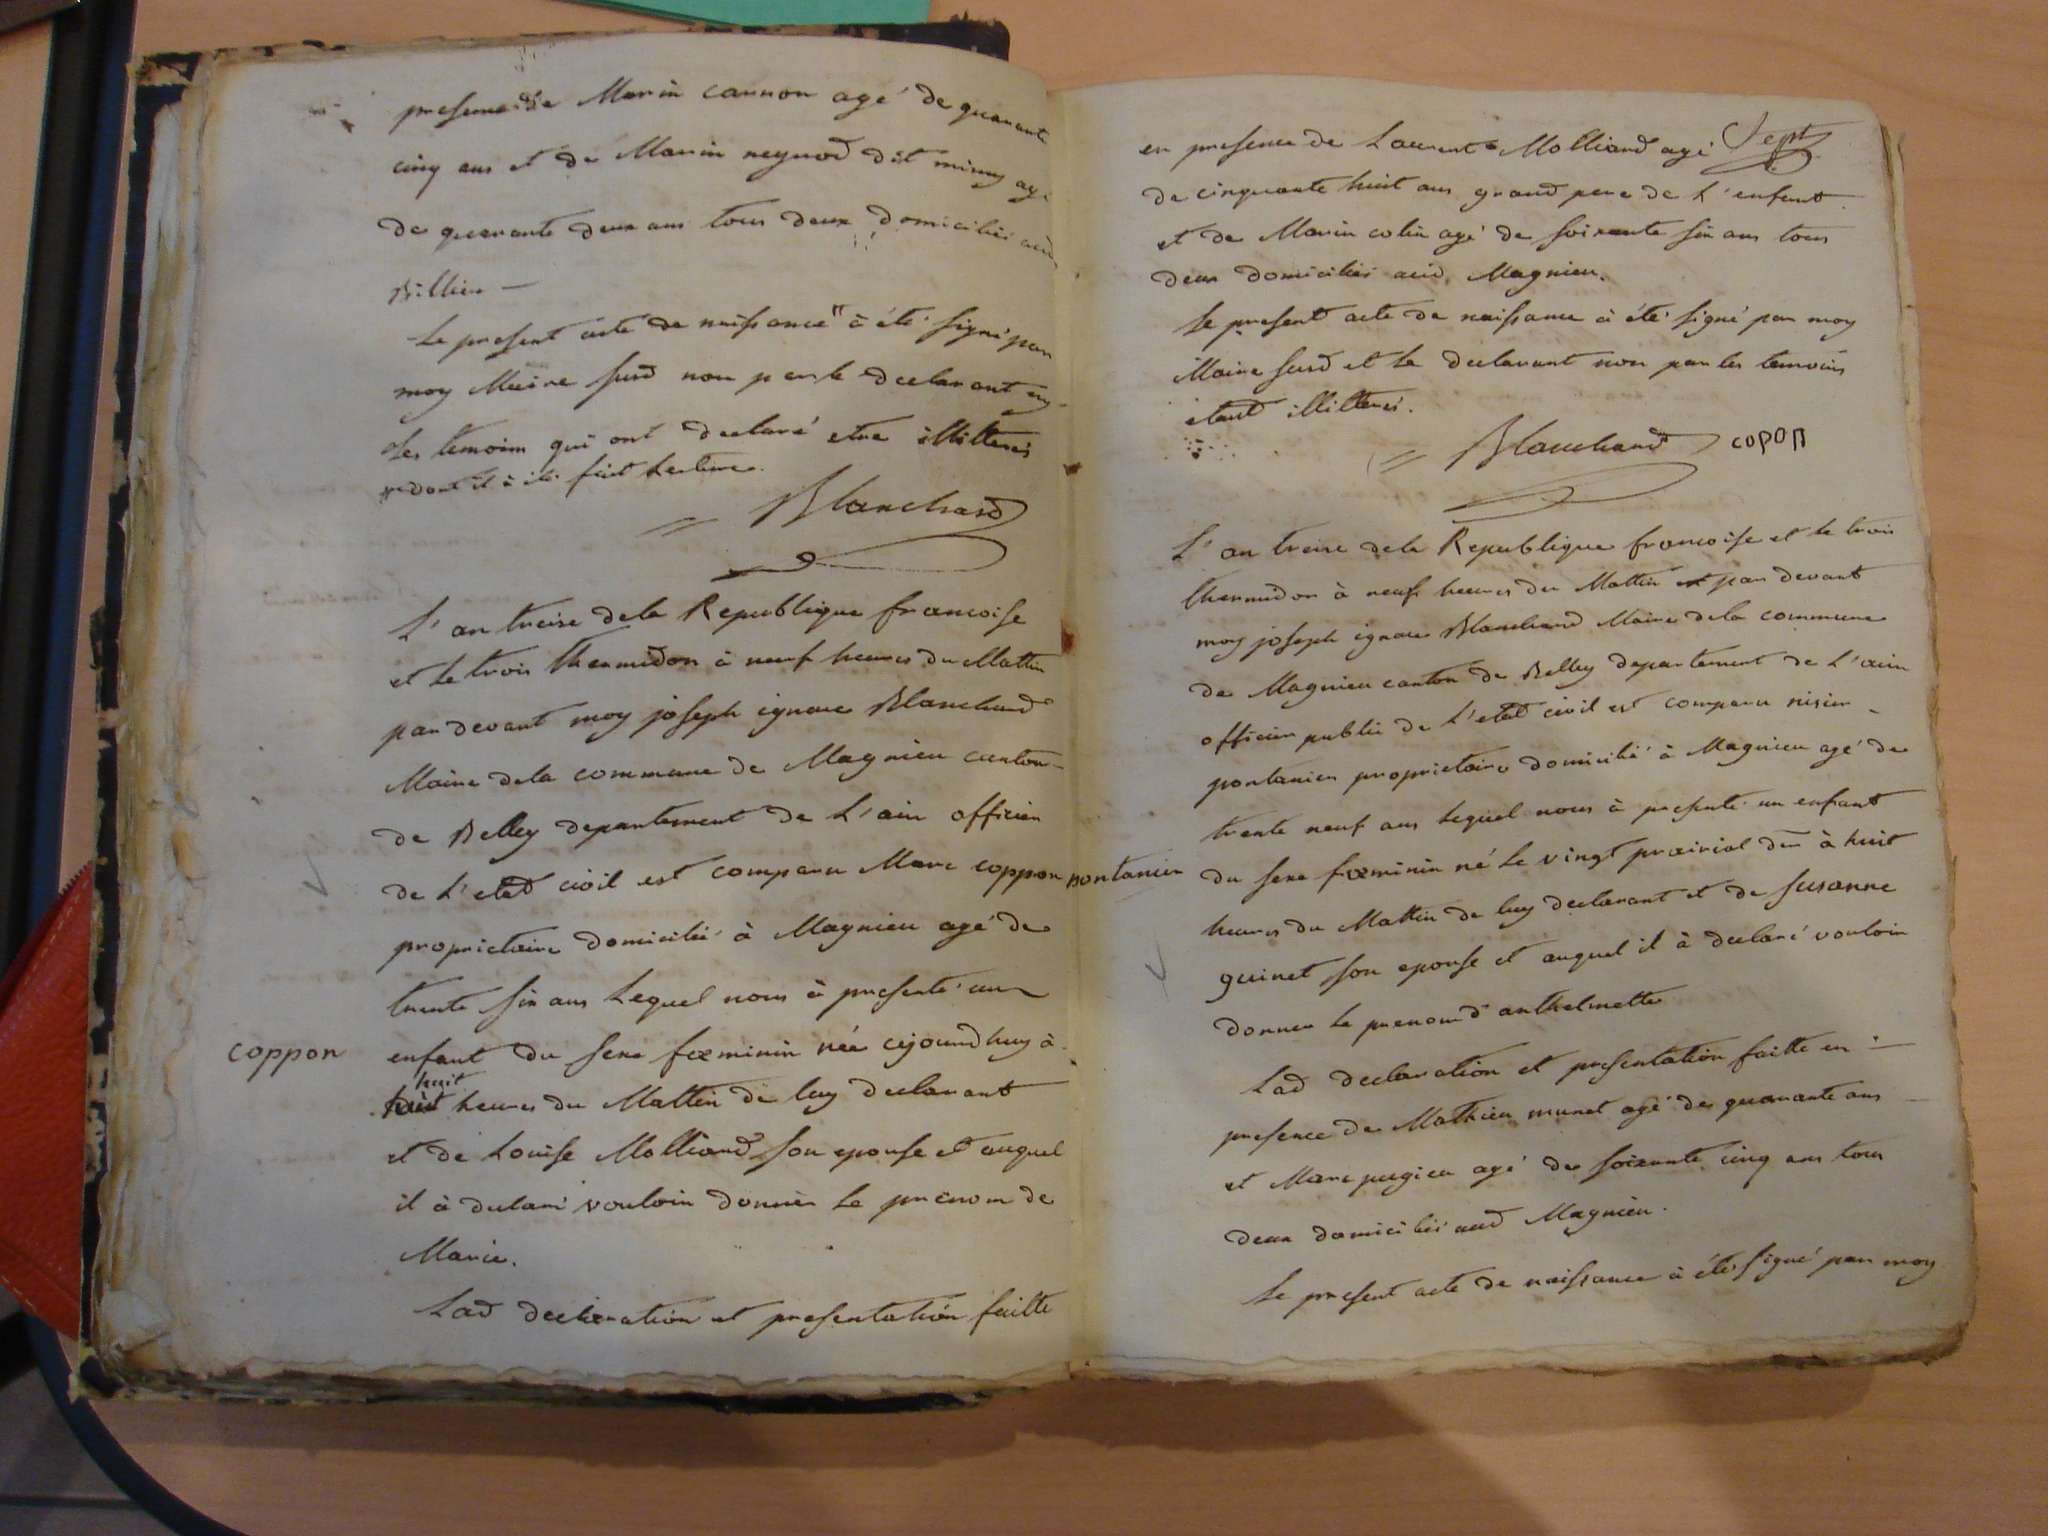 presence de Marin cannon agé de quarante
cinq ans et de Marin reynod dit mimy agé
de quarante deux ans tous deux domiciliés aud
Billieu —
Le present acte de naissance" à été signé par
moy Maire susd non par le declarant ny
les temoins qui ont declaré etre illitterés
"dont il à été fait lecture.
Blanchard
L'an treise dela Republique francoise
et le trois thermidor à neuf heures du Mattin
pardevant moy joseph ignace Blanchard
Maire dela commune de Magnieu canton
de Belley departement de L'ain officier
de L'etat civil est comparu Marc coppon
proprietaire domicilié à Magnieu agé de
trente six ans Lequel nous à presenté un
coppon
enfant du sexe fœminin née cejourdhuy à
huit
huit heures du Mattin de luy declarant
et de Louise Molliard son epouse et auquel
il à declaré vouloir donner le prenom de
Marie.
Lad declaration et presentation faitte
Sept
en presence de Laurent Molliard agé
de cinquante huit ans grand pere de L'enfant
et de Marin colin agé de soixante six ans tous
deux domiciliés aud. Magnieu.
Le present acte de naissance à été signé par moy
Maire susd et le declarant non par les temoins
etant illitterés.
Blanchard copon
L'an treise dela Republique francoise et le trois
thermidor à neuf heures du Mattin et par devant
moy joseph ignace Blanchard Maire dela commune
de Magnieu canton de Belley departement de L'ain
officier public de L'etat civil est comparu nisier
pontanier proprietaire domicilié à Magnieu agé de
trente neuf ans Lequel nous à presenté un enfant
pontanier
du sexe fœminin né le vingt prairial der à huit
heures du Mattin de luy declarant et de susanne
guinet son epouse et auquel il à declaré vouloir
donner le prenom d'anthelmette
Lad declaration et presentation faitte en
presence de Mathieu munet agé de quarante ans
et Marc pugieu agé de soixante cinq ans tous
deux domiciliés aud Magnieu.
Le present acte de naissance à été signé par moy